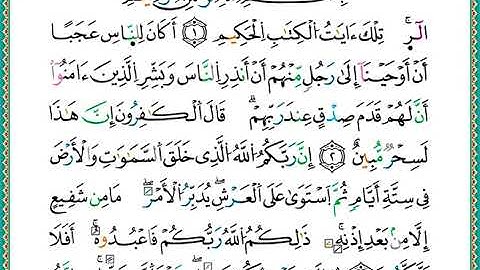 الٓرۚ تِلْكَ ءَايَٰتُ ٱلْكِتَٰبِ ٱلْحَكِيمِ ۝١ أَكَانَ لِلنَّاسِ عَجَبًا
أَنْ أَوْحَيْنَآ إِلَىٰ رَجُلٍ مِّنْهُمْ أَنْ أَنذِرِ ٱلنَّاسَ وَبَشِّرِ ٱلَّذِينَ ءَامَنُوٓا۟
أَنَّ لَهُمْ قَدَمَ صِدْقٍ عِندَ رَبِّهِمْۗ قَالَ ٱلْكَٰفِرُونَ إِنَّ هَٰذَا
لَسَٰحِرٌ مُّبِينٌ ۝٢ إِنَّ رَبَّكُمُ ٱللَّهُ ٱلَّذِى خَلَقَ ٱلسَّمَٰوَٰتِ وَٱلْأَرْضَ
فِى سِتَّةِ أَيَّامٍ ثُمَّ ٱسْتَوَىٰ عَلَى ٱلْعَرْشِۖ يُدَبِّرُ ٱلْأَمْرَۖ مَا مِن شَفِيعٍ
إِلَّا مِنۢ بَعْدِ إِذْنِهِۦۚ ذَٰلِكُمُ ٱللَّهُ رَبُّكُمْ فَٱعْبُدُوهُۚ أَفَلَا